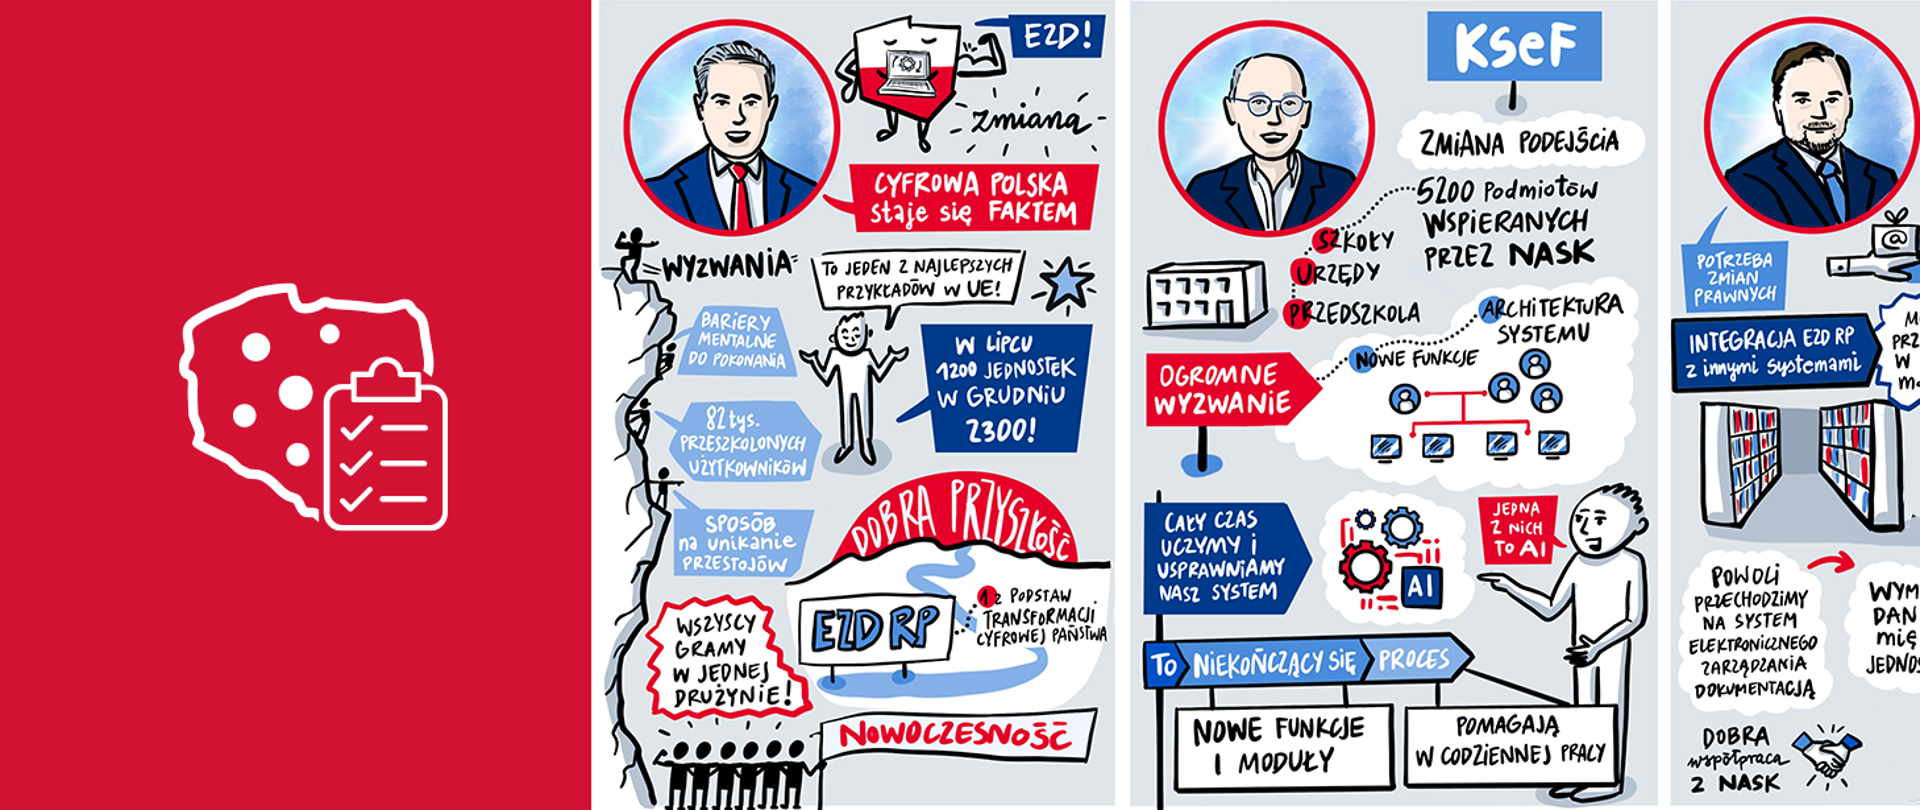 EZD!
zmiana
CYFROWA POLSKA
staje się FAKTEM
WYZWANIA
TO JEDEN Z NAJLEPSZYCH
PRZYKŁADÓW W UE!
BARIERY
MENTALNE
DO POKONANIA
W LIPCU
1200 JEDNOSTEK
W GRUDNIU
2300!
82 tys.
PRZESZKOLONYCH
UŻYTKOWNIKÓW
SPOSÓB
na unikanie
PRZESTOJÓW
DOBRA PRZYSZŁOŚĆ
EZD RP
1 z PODSTAW
TRANSFORMACJI
CYFROWEJ PAŃSTWA
WSZYSCY
GRAMY
W JEDNEJ
DRUŻYNIE!
NOWOCZESNOŚĆ
KSeF
ZMIANA PODEJŚCIA
5200 Podmiotów
WSPIERANYCH
PRZEZ NASK
SZKOŁY
URZĘDY
PRZEDSZKOLA
ARCHITEKTURA
SYSTEMU
NOWE FUNKCJE
OGROMNE
WYZWANIE
CAŁY CZAS
UCZYMY i
USPRAWNIAMY
NASZ SYSTEM
AI
JEDNA
Z NICH
TO AI
TO NIEKOŃCZĄCY SIĘ PROCES
NOWE FUNKCJE
I MODUŁY
POMAGAJĄ
W CODZIENNEJ PRACY
@
POTRZEBA
ZMIAN
PRAWNYCH
INTEGRACJA EZD RP
z innymi systemami
PRZ
W
POWOLI
PRZECHODZIMY
NA SYSTEM
ELEKTRONICZNEGO
ZARZĄDZANIA
DOKUMENTACJĄ
WYM
DAN
mię
JEDNOS
DOBRA
współpraca
Z NASK